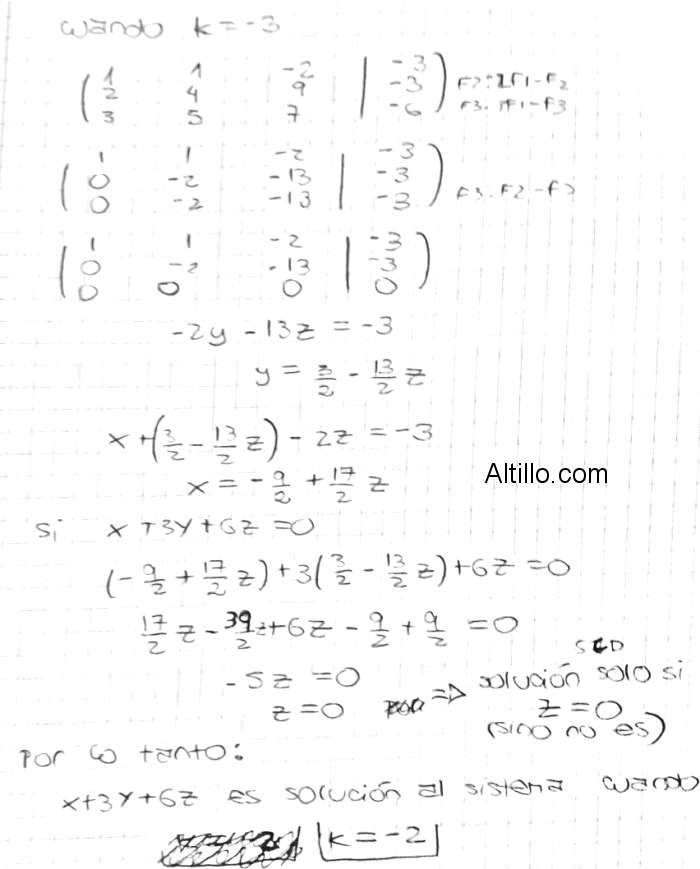 cuando k = -3
( 1 1 -2 | -3 )
( 2 4 9 | -3 ) F2: 2F1-F2
( 3 5 7 | -6 ) F3: 3F1-F3
( 1 1 -2 | -3 )
( 0 -2 -13 | -3 )
( 0 -2 -13 | -3 ) F3: F2-F3
( 1 1 -2 | -3 )
( 0 -2 -13 | -3 )
( 0 0 0 | 0 )
-2y - 13z = -3
y = 3/2 - 13/2 z
x + (3/2 - 13/2 z) - 2z = -3
x = -9/2 + 17/2 z
Altillo.com
si x + 3y + 6z = 0
(-9/2 + 17/2 z) + 3(3/2 - 13/2 z) + 6z = 0
17/2 z - 39/2 z + 6z - 9/2 + 9/2 = 0
-5z = 0
SCD
z = 0 => solución solo si
z = 0
(sino no es)
Por lo tanto:
x+3y+6z es solución al sistema cuando
k = -2